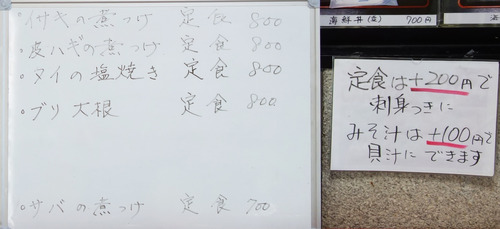 ・イサキの煮つけ 定食 800
・皮ハギの煮つけ 定食 800
・タイの塩焼き 定食 800
・ブリ大根 定食 800
・サバの煮つけ 定食 700
海鮮丼(並) 700円
定食は+200円で
刺身つきに
みそ汁は+100円で
貝汁にできます